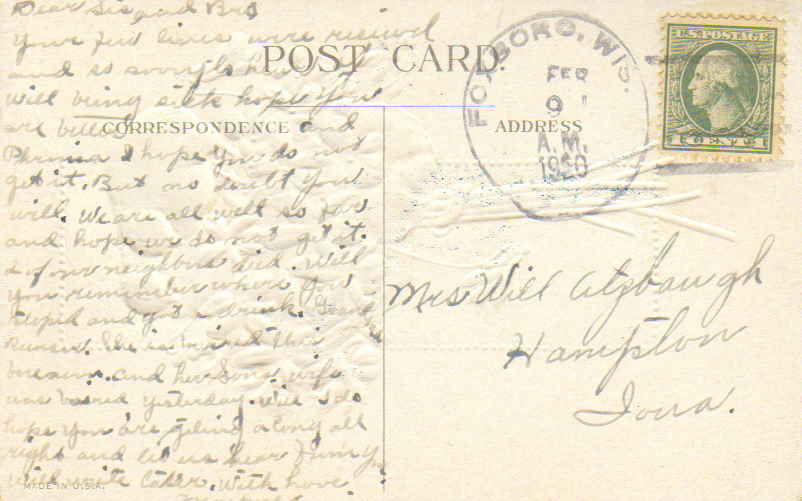 Dear Sis and Bro
Your few lines were received
and so sorry to hear
Will being sick hope you
are better and
I hope you do not
get it. But no doubt you
will. We are all well so far
and hope we do not get it.
2 of our neighbors died. Will
you remember where you
stoped and got a drink.
She is buried this
and her Sons wife
was buried yesterday. Well I do
hope you are getting along all
right and let us hear from you
will write later. With love
POST CARD
CORRESPONDENCE
ADDRESS
FOXBORO, WIS.
FEB
9
A.M.
1920
U.S. POSTAGE
1 CENT 1
Mrs Will Atzbaugh
Hampton
Iowa.
MADE IN U.S.A.